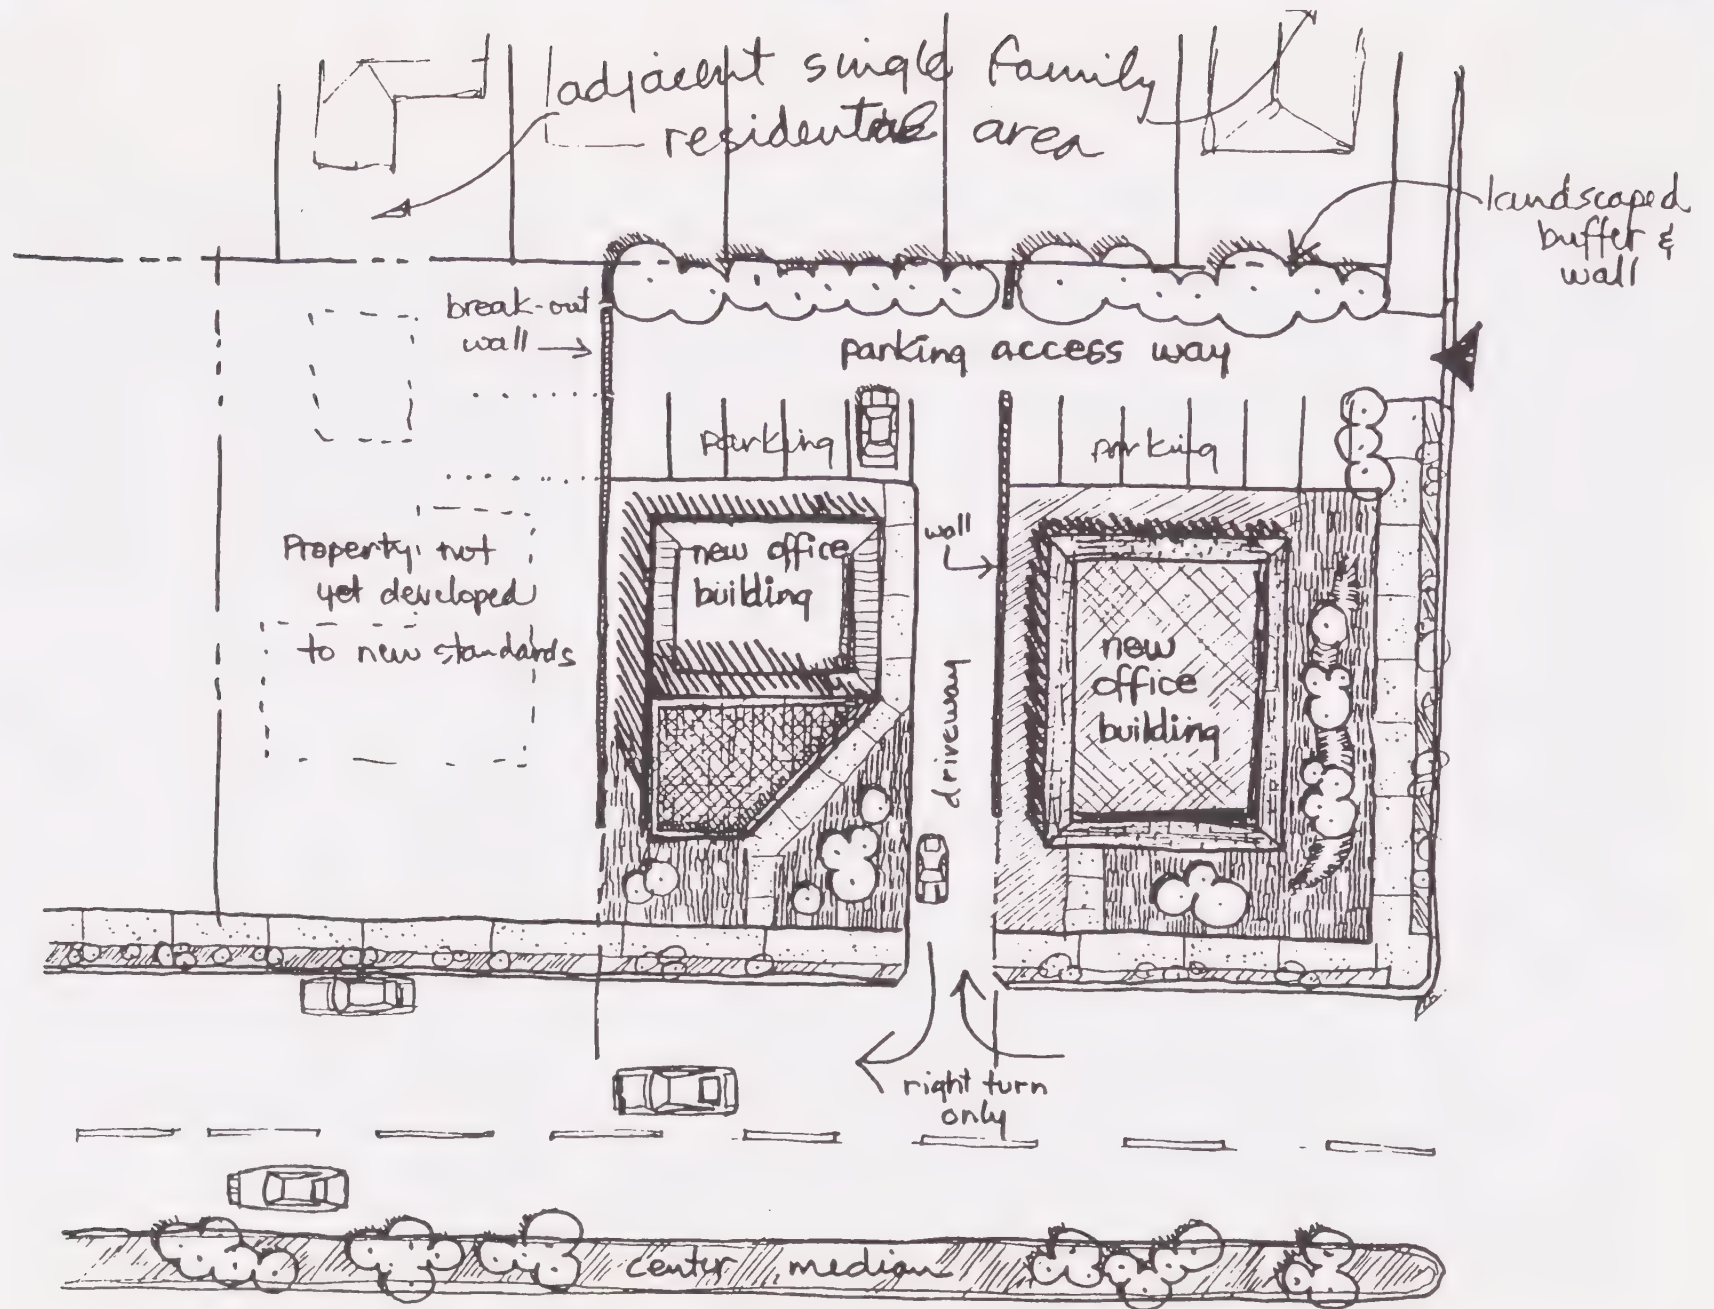 adjacent single family
residential area
landscaped
buffer &
wall
break-out
wall
parking access way
parking
parking
Property not
yet developed
to new standards
new office
building
wall
driveway
new
office
building
right turn
only
center median